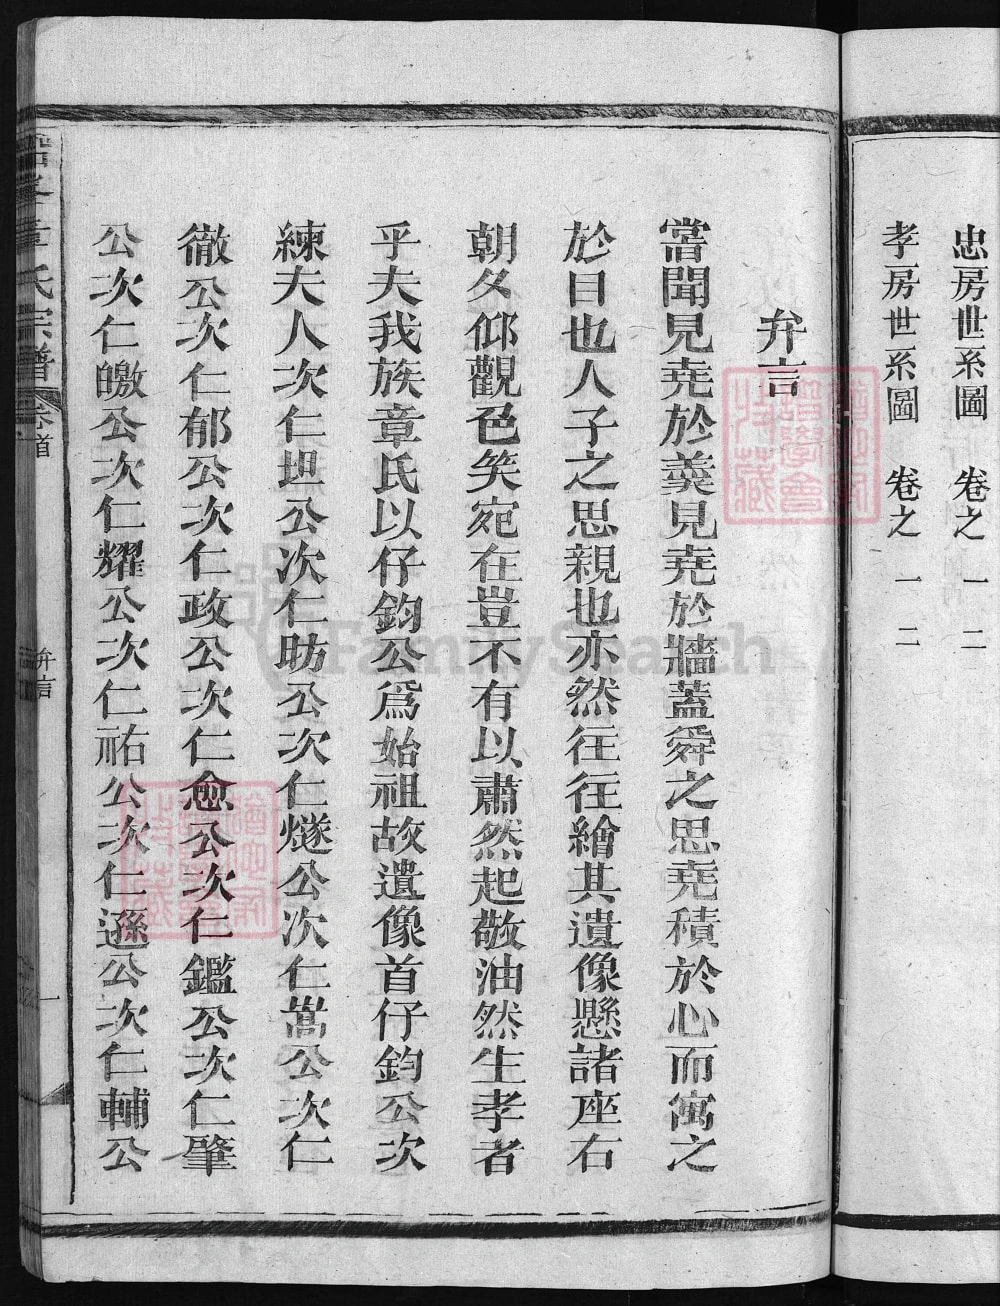 忠房世系圖　卷之一二
孝房世系圖　卷之一二
弁言
嘗聞見堯於羹見堯於牆蓋舜之思堯積於心而寓之
於目也人子之思親也亦然往往繪其遺像懸諸座右
朝夕仰觀色笑宛在豈不有以肅然起敬油然生孝者
乎夫我族章氏以仔鈞公爲始祖故遺像首仔鈞公次
練夫人次仁坦公次仁昉公次仁燧公次仁嵩公次仁
徹公次仁郁公次仁政公次仁愈公次仁鑑公次仁肇
公次仁皦公次仁耀公次仁祐公次仁遜公次仁輔公
章氏宗譜
卷首
弁言
一
FamilySearch